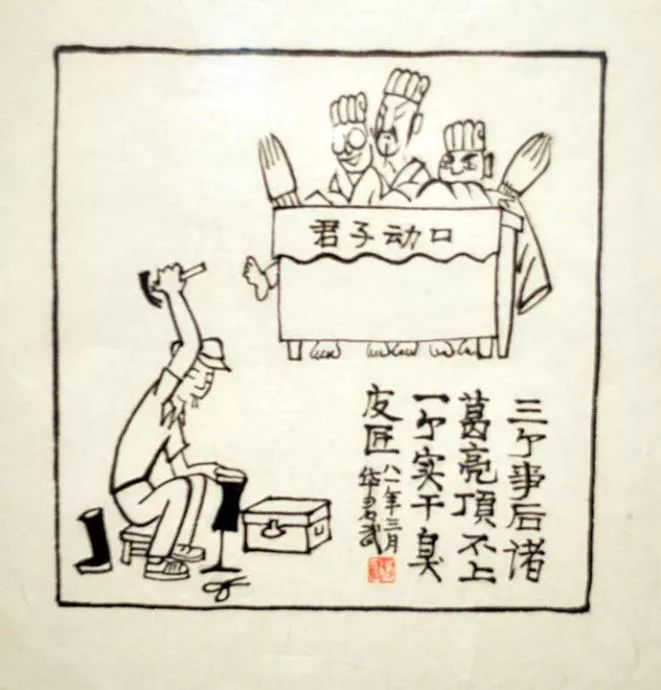 君子动口
三个事后诸
葛亮頂不上
一个实干臭
皮匠
八一年三月
华君武